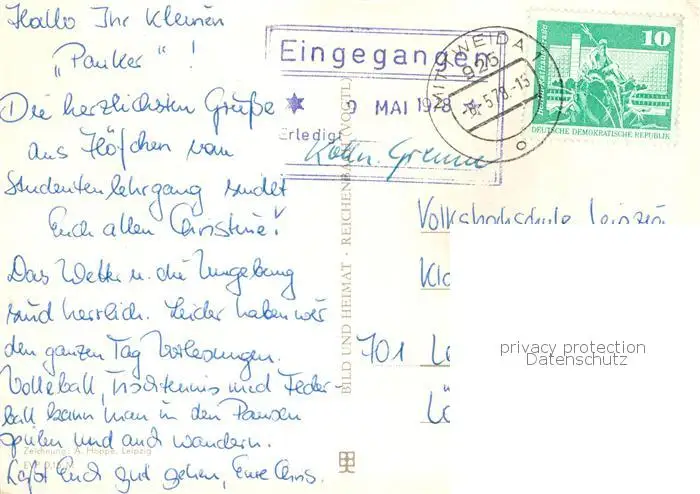 Hallo Ihr kleinen
„Pauker"!
Die herzlichsten Grüße
aus Höfchen vom
Studentenlehrgang sendet
Euch allen Christine!
Das Wetter u. die Umgebung
sind herrlich. Leider haben wir
den ganzen Tag Vorlesungen.
Volleyball, Tischtennis und Feder-
ball kann man in den Pausen
spielen und auch wandern.
Laßt Euch gut gehen, Eure Chris.
Zeichnung: A. Hoppe, Leipzig
BILD UND HEIMAT · REICHENBACH (VOGTL)
Eingegangen
9. MAI 1978
Erledigt
Kolln.
MITTWEIDA 1
925
-5.78-15
10
DEUTSCHE DEMOKRATISCHE REPUBLIK
Volkshochschule Leipzig
701 Le
privacy protection
Datenschutz